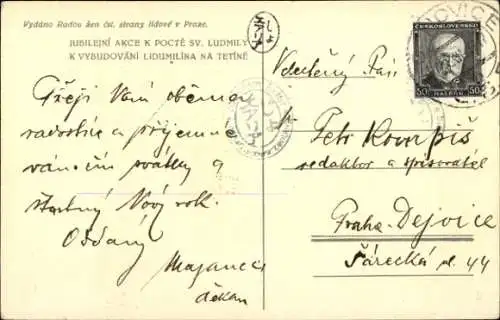 Vydáno Radou žen čsl. strany lidové v Praze.
JUBILEJNÍ AKCE K POCTĚ SV. LUDMILY
K VYBUDOVÁNÍ LIDUMILÍNA NA TETÍNĚ
Přeji Vám oběma
radostné a příjemné
vánoční svátky a
šťastný Nový rok.
Oddaný
děkan
ČESKOSLOVENSKO
50 50
Velectěný Pán
p. Petr Kompiš
redaktor a spisovatel
Praha-Dejvice
Šárecká ul. 44